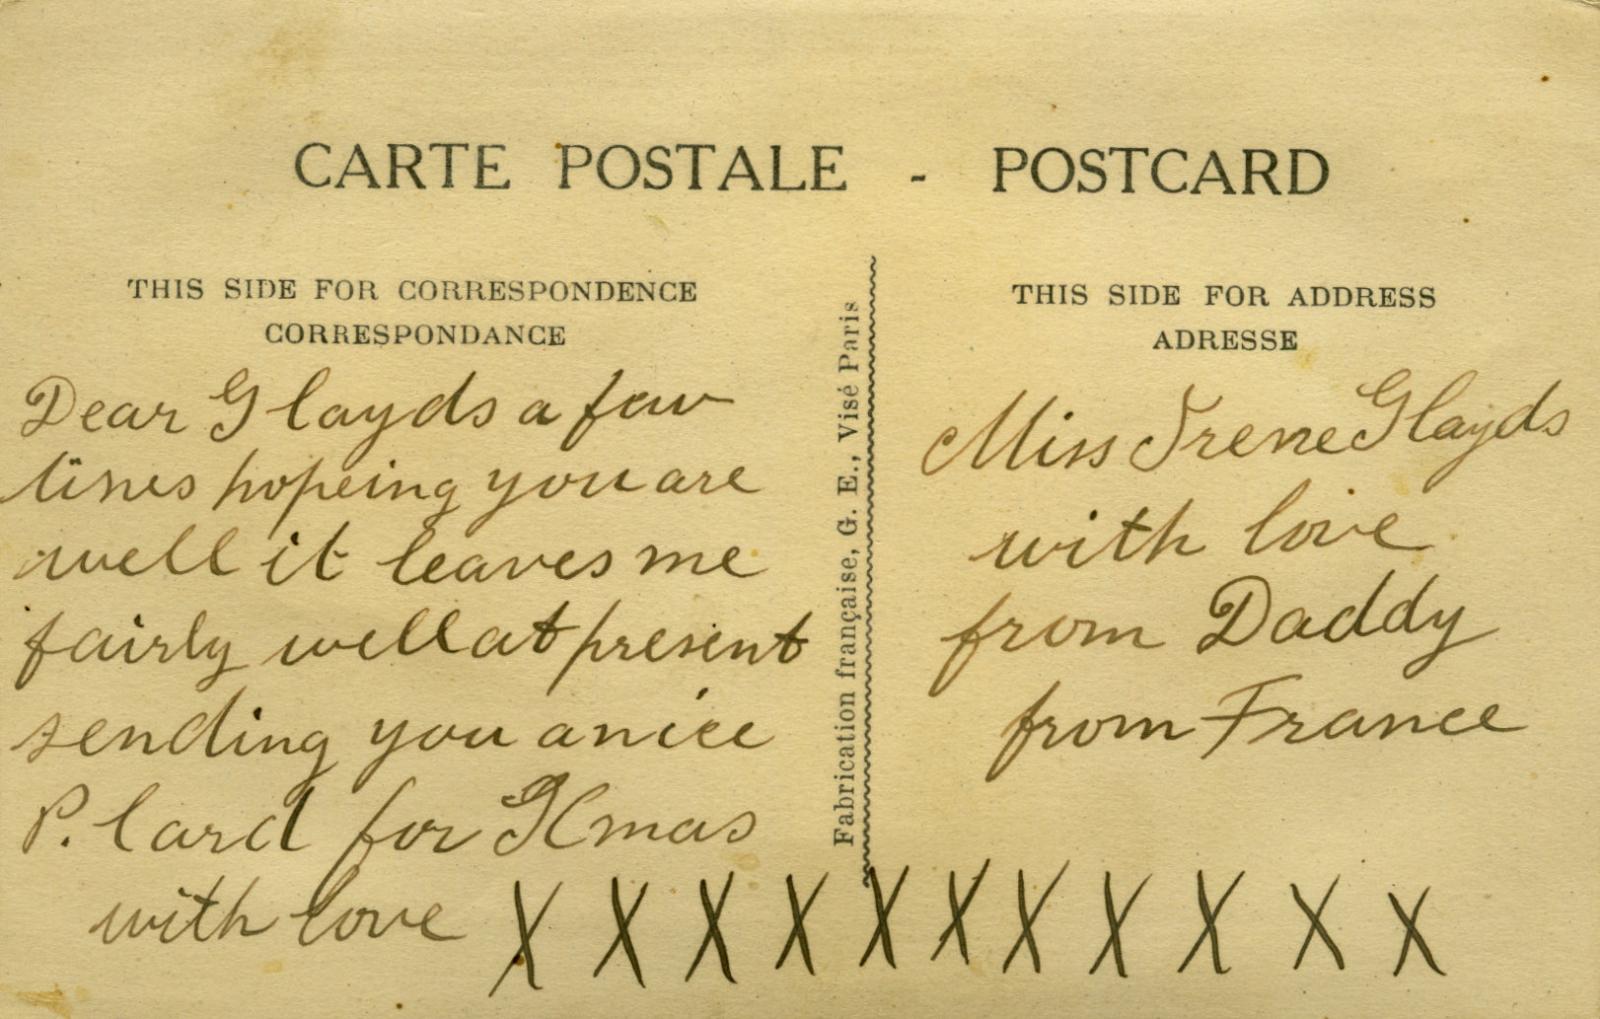 CARTE POSTALE - POSTCARD
THIS SIDE FOR CORRESPONDENCE
CORRESPONDANCE
Dear Glayds a few
lines hopeing you are
well it leaves me
fairly well at present
sending you a nice
P. Card for Xmas
with love X X X X X X X X X X X
Fabrication française, G. E., Visé Paris
THIS SIDE FOR ADDRESS
ADRESSE
Miss Irene Glayds
with love
from Daddy
from France